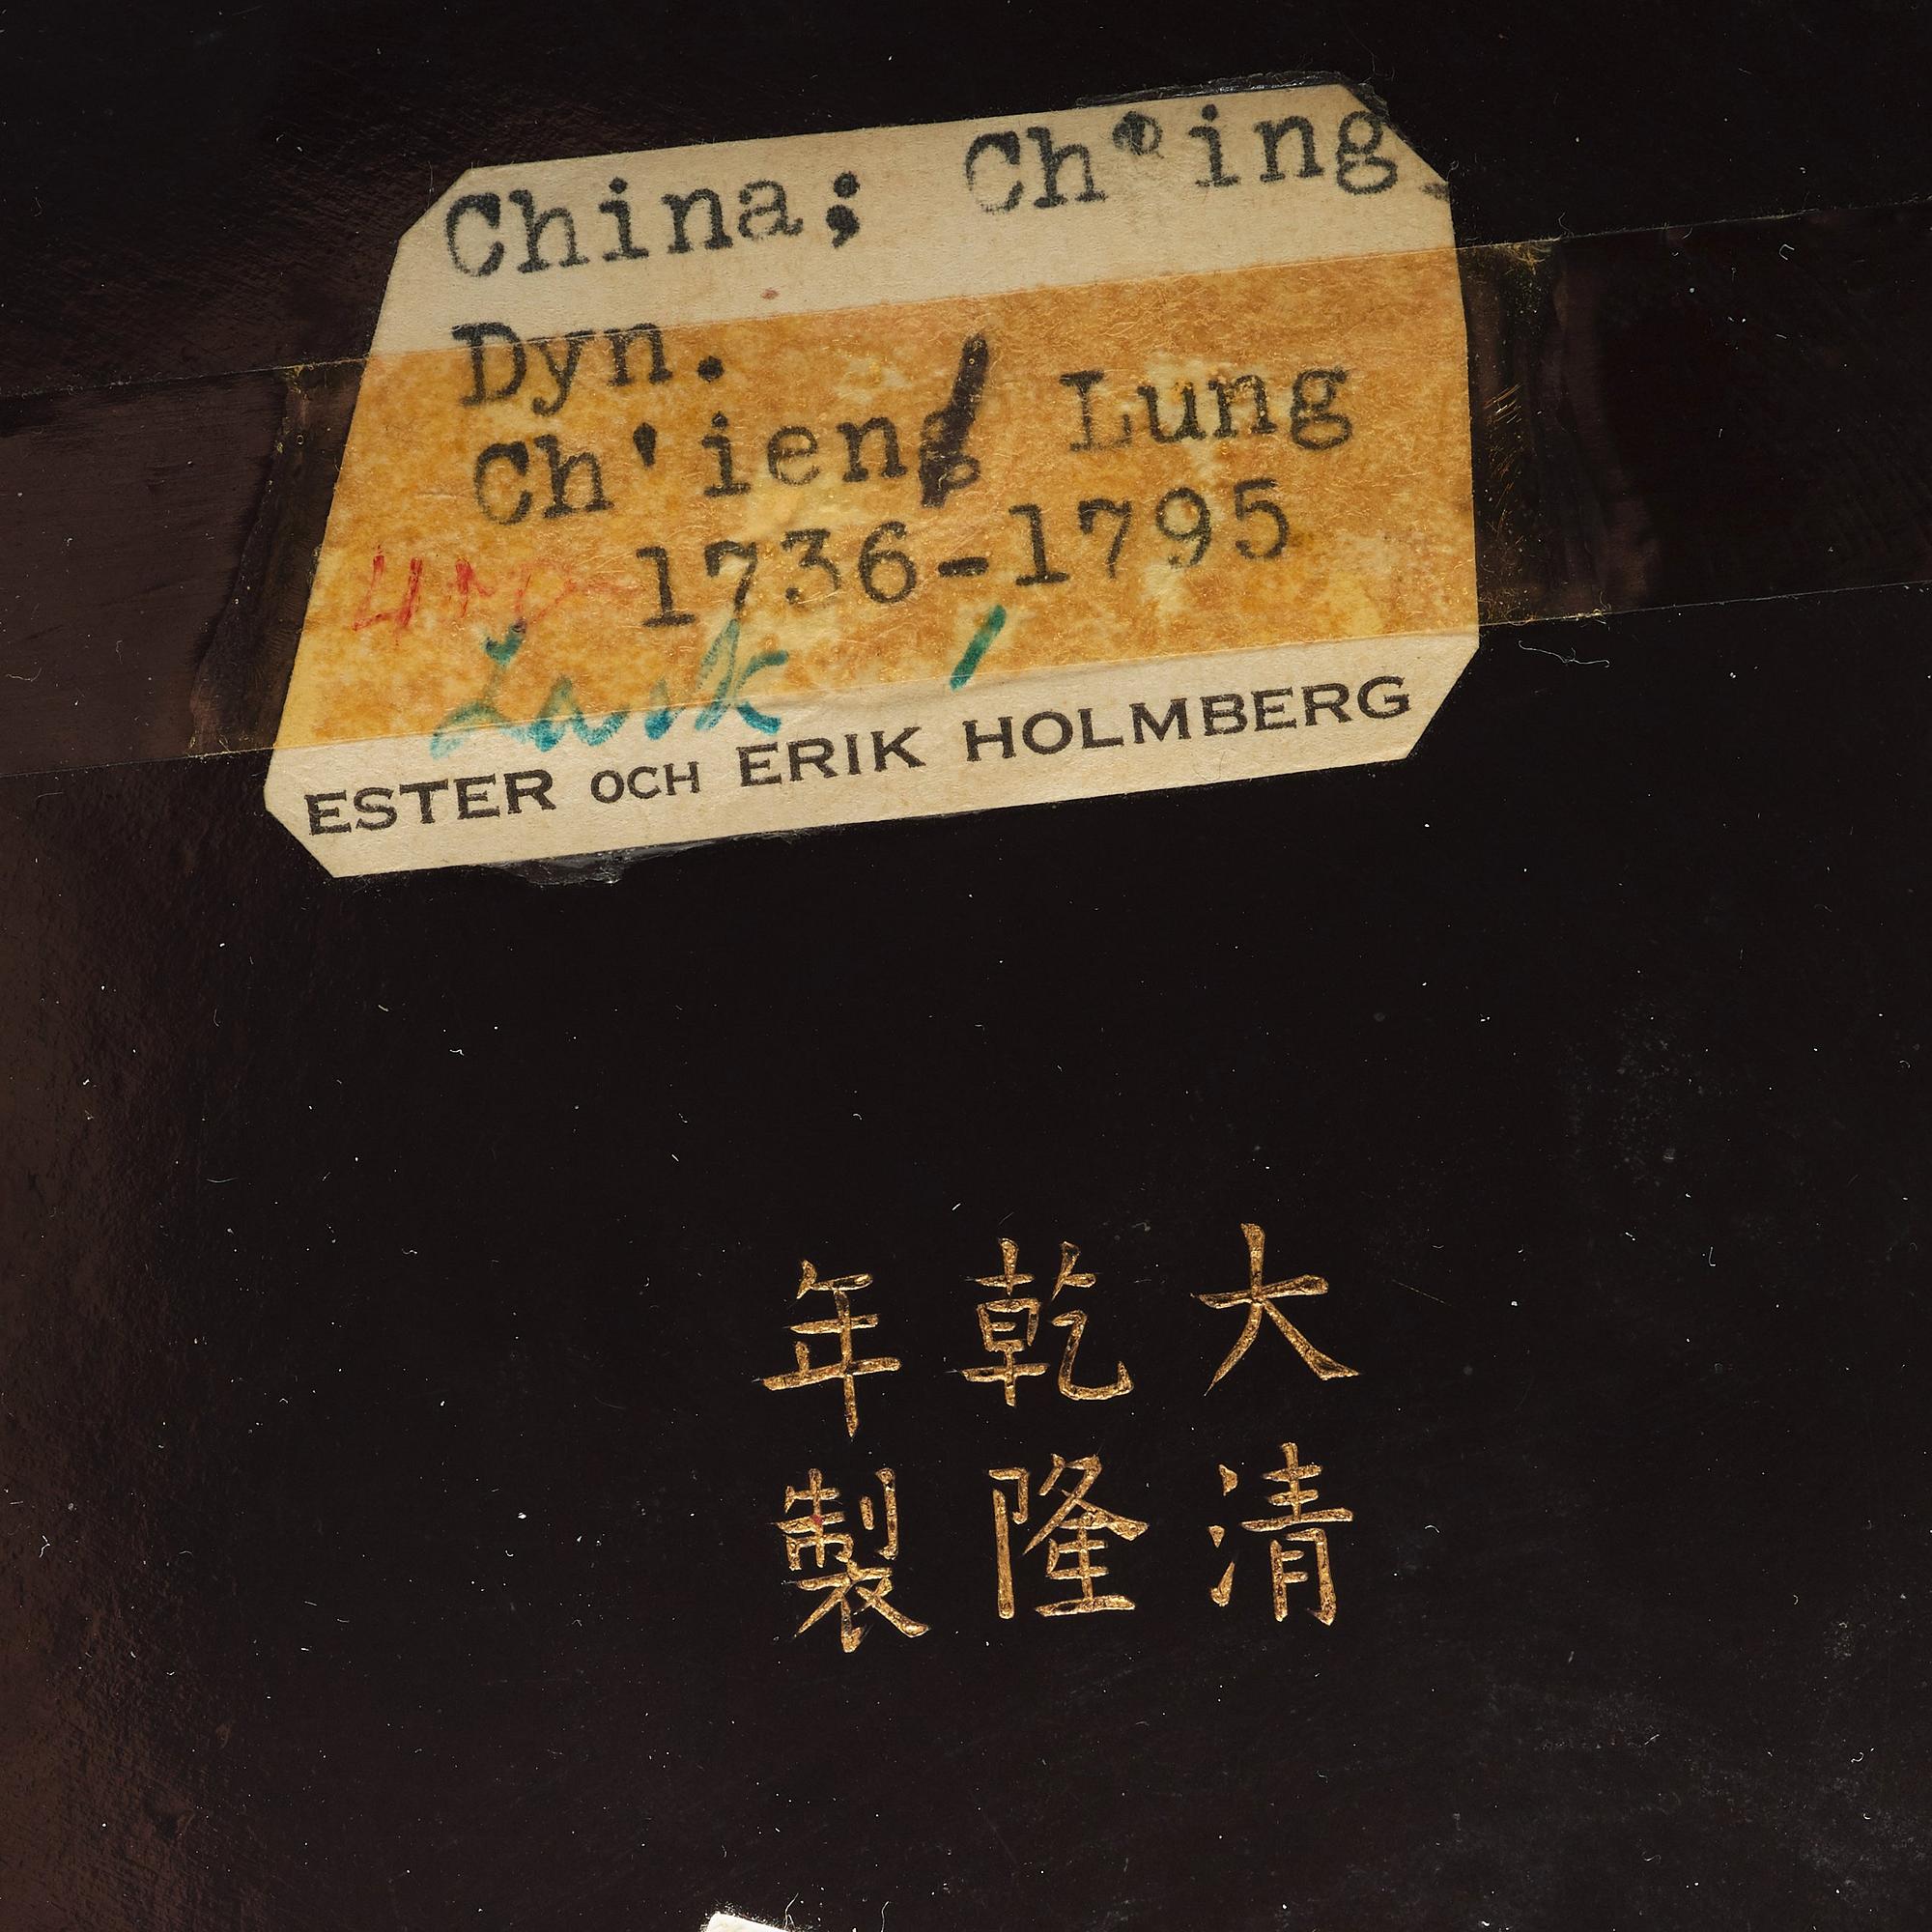 China; Ch'ing
Dyn.
Ch'ieng Lung
1736-1795
ESTER OCH ERIK HOLMBERG
大清
乾隆
年製